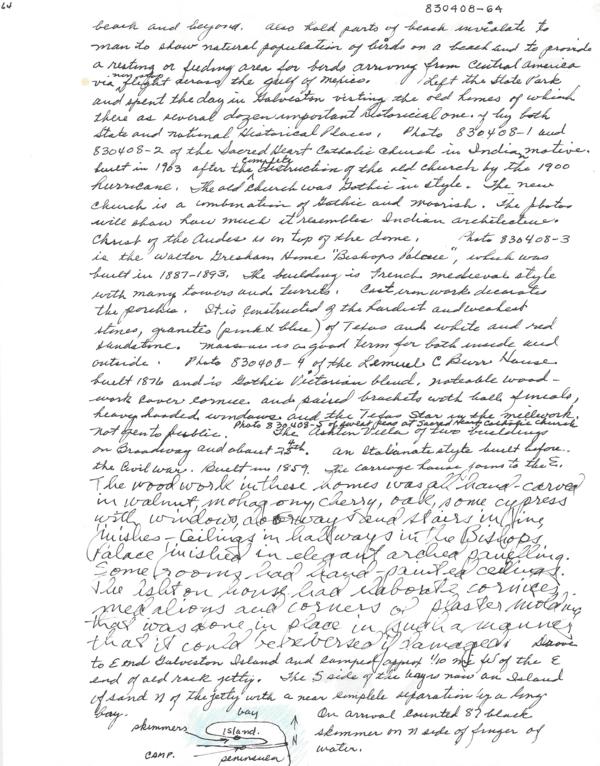 830408-64
beach and beyond. Also hold parts of beach inviolate to
man to show natural population of birds on a beach and to provide
a resting or feeding area for birds arriving from Central America
via non stop flight across the gulf of Mexico. Left the State Park
and spent the day in Galveston visiting the old homes of which
there as several dozen important historicial one. of by both
State and national Historical Places. Photo 830408-1 and
830408-2 of the Sacred Heart Catholic Church in Indian motive.
built in 1903 after the complete distruction of the old church by the 1900
hurricane. The old church was Gothic in style. The new
church is a combination of Gothic and moorish. The photos
will show how much it resembles Indian architecture.
Christ of the Andes is on top of the dome. Photo 830408-3
is the Walter Gresham Home "Bishops Palace", which was
built in 1887-1893. The building is French medieval style
with many towers and turrets. Cast iron work decorates
the porches. It is constructed of the hardest and
stones, granites (pink & blue) of Texas and white and red
sandstone. is a good term for both inside and
outside. Photo 830408-4 of the Lemuel C Burr House
built 1876 and is Gothic Victorian blend. noteable wood-
work cornice and paired brackets with
heavy hooded windows and the Texas Star in the millwork.
Photo 830408-5 of sweet peas at Sacred Heart Catholic church
not open to public. The Ashton Villa of two buildings
on Broadway and about 25th. an Italianate style built before
the Civil war. Built in 1859. The carriage house joins to the E.
The wood work in these homes was all hand-carved
in walnut, mohagony, cherry, oak, some cypress
with windows, doorways and stairs in fine
finishes - Ceilings in hallways in the Bishops
Palace finished in elegant arched panelling.
Some rooms had hand-painted ceilings.
The Ashton house had elaborate cornices
medalions and corners of plaster molding
that was done in place in such a manner
that it could be reversed if damaged. Drove
to E end Galveston Island and camped approx 1/10 mi W of the E
end of old rock jetty. The S side of the is now an Island
of sand N of the jetty with a near complete separation by a long
bay.
On arrival counted 87 black
skimmer on N side of finger of
water.
bay
skimmers
island.
N
camp.
peninsula